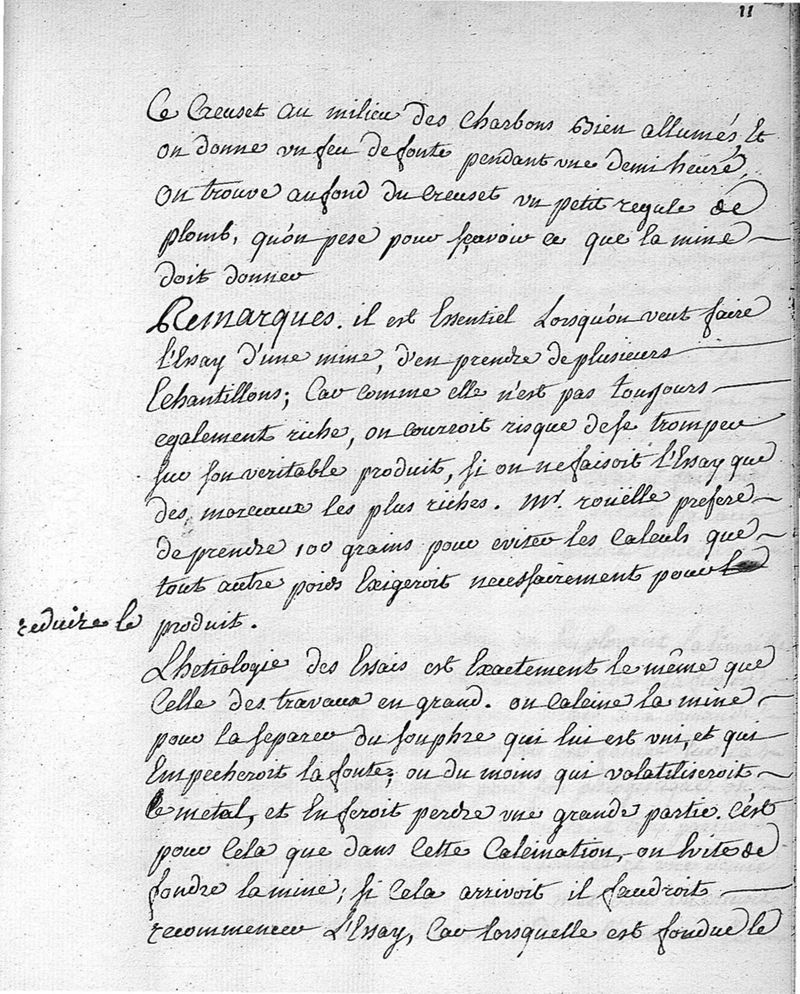 11
Ce Creuset au milieu des charbons Bien allumés, Et
on donne un feu de fonte pendant une demi heure,
on trouve au fond du Creuset un petit regule de
plomb, qu'on pese pour sçavoir ce que la mine
doit donner
Remarques. il est Essentiel Lorsqu'on veut faire
l'Essay d'une mine, d'en prendre de plusieurs
Echantillons; Car comme elle n'est pas toujours
egalement riche, on courroit risque de se tromper
sur son veritable produit, si on ne faisoit l'Essay que
des morceaux les plus riches. Mr. rouelle prefere
de prendre 100 grains pour eviter les Calculs que
tout autre poids Exigeroit necessairement pour
reduire le produit.
L'hetiologie des Essais est Exactement le même que
Celle des travaux en grand. on Calcine la mine
pour la separer du souphre qui lui est uni, et qui
Empecheroit la fonte; ou du moins qui volatiliseroit
le metal, et En feroit perdre une grande partie. C'est
pour Cela que dans Cette Calcination, on Evite de
fondre la mine; si Cela arrivoit il faudroit
recommencer L'Essay, Car lorsquelle est fondue le